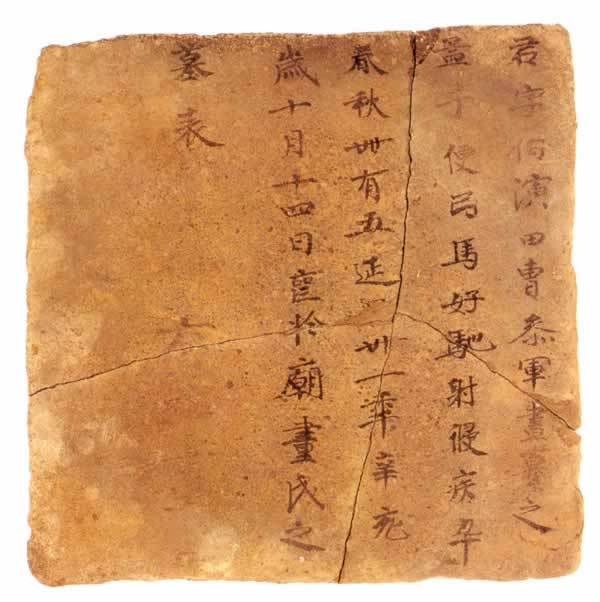 君字伯演田曹叅軍畫纂之
孟子便弓馬好馳射侵疾卒
春秋卅有五延昌卅一年辛亥
歲十月十四日喪於廟畫氏之
墓表